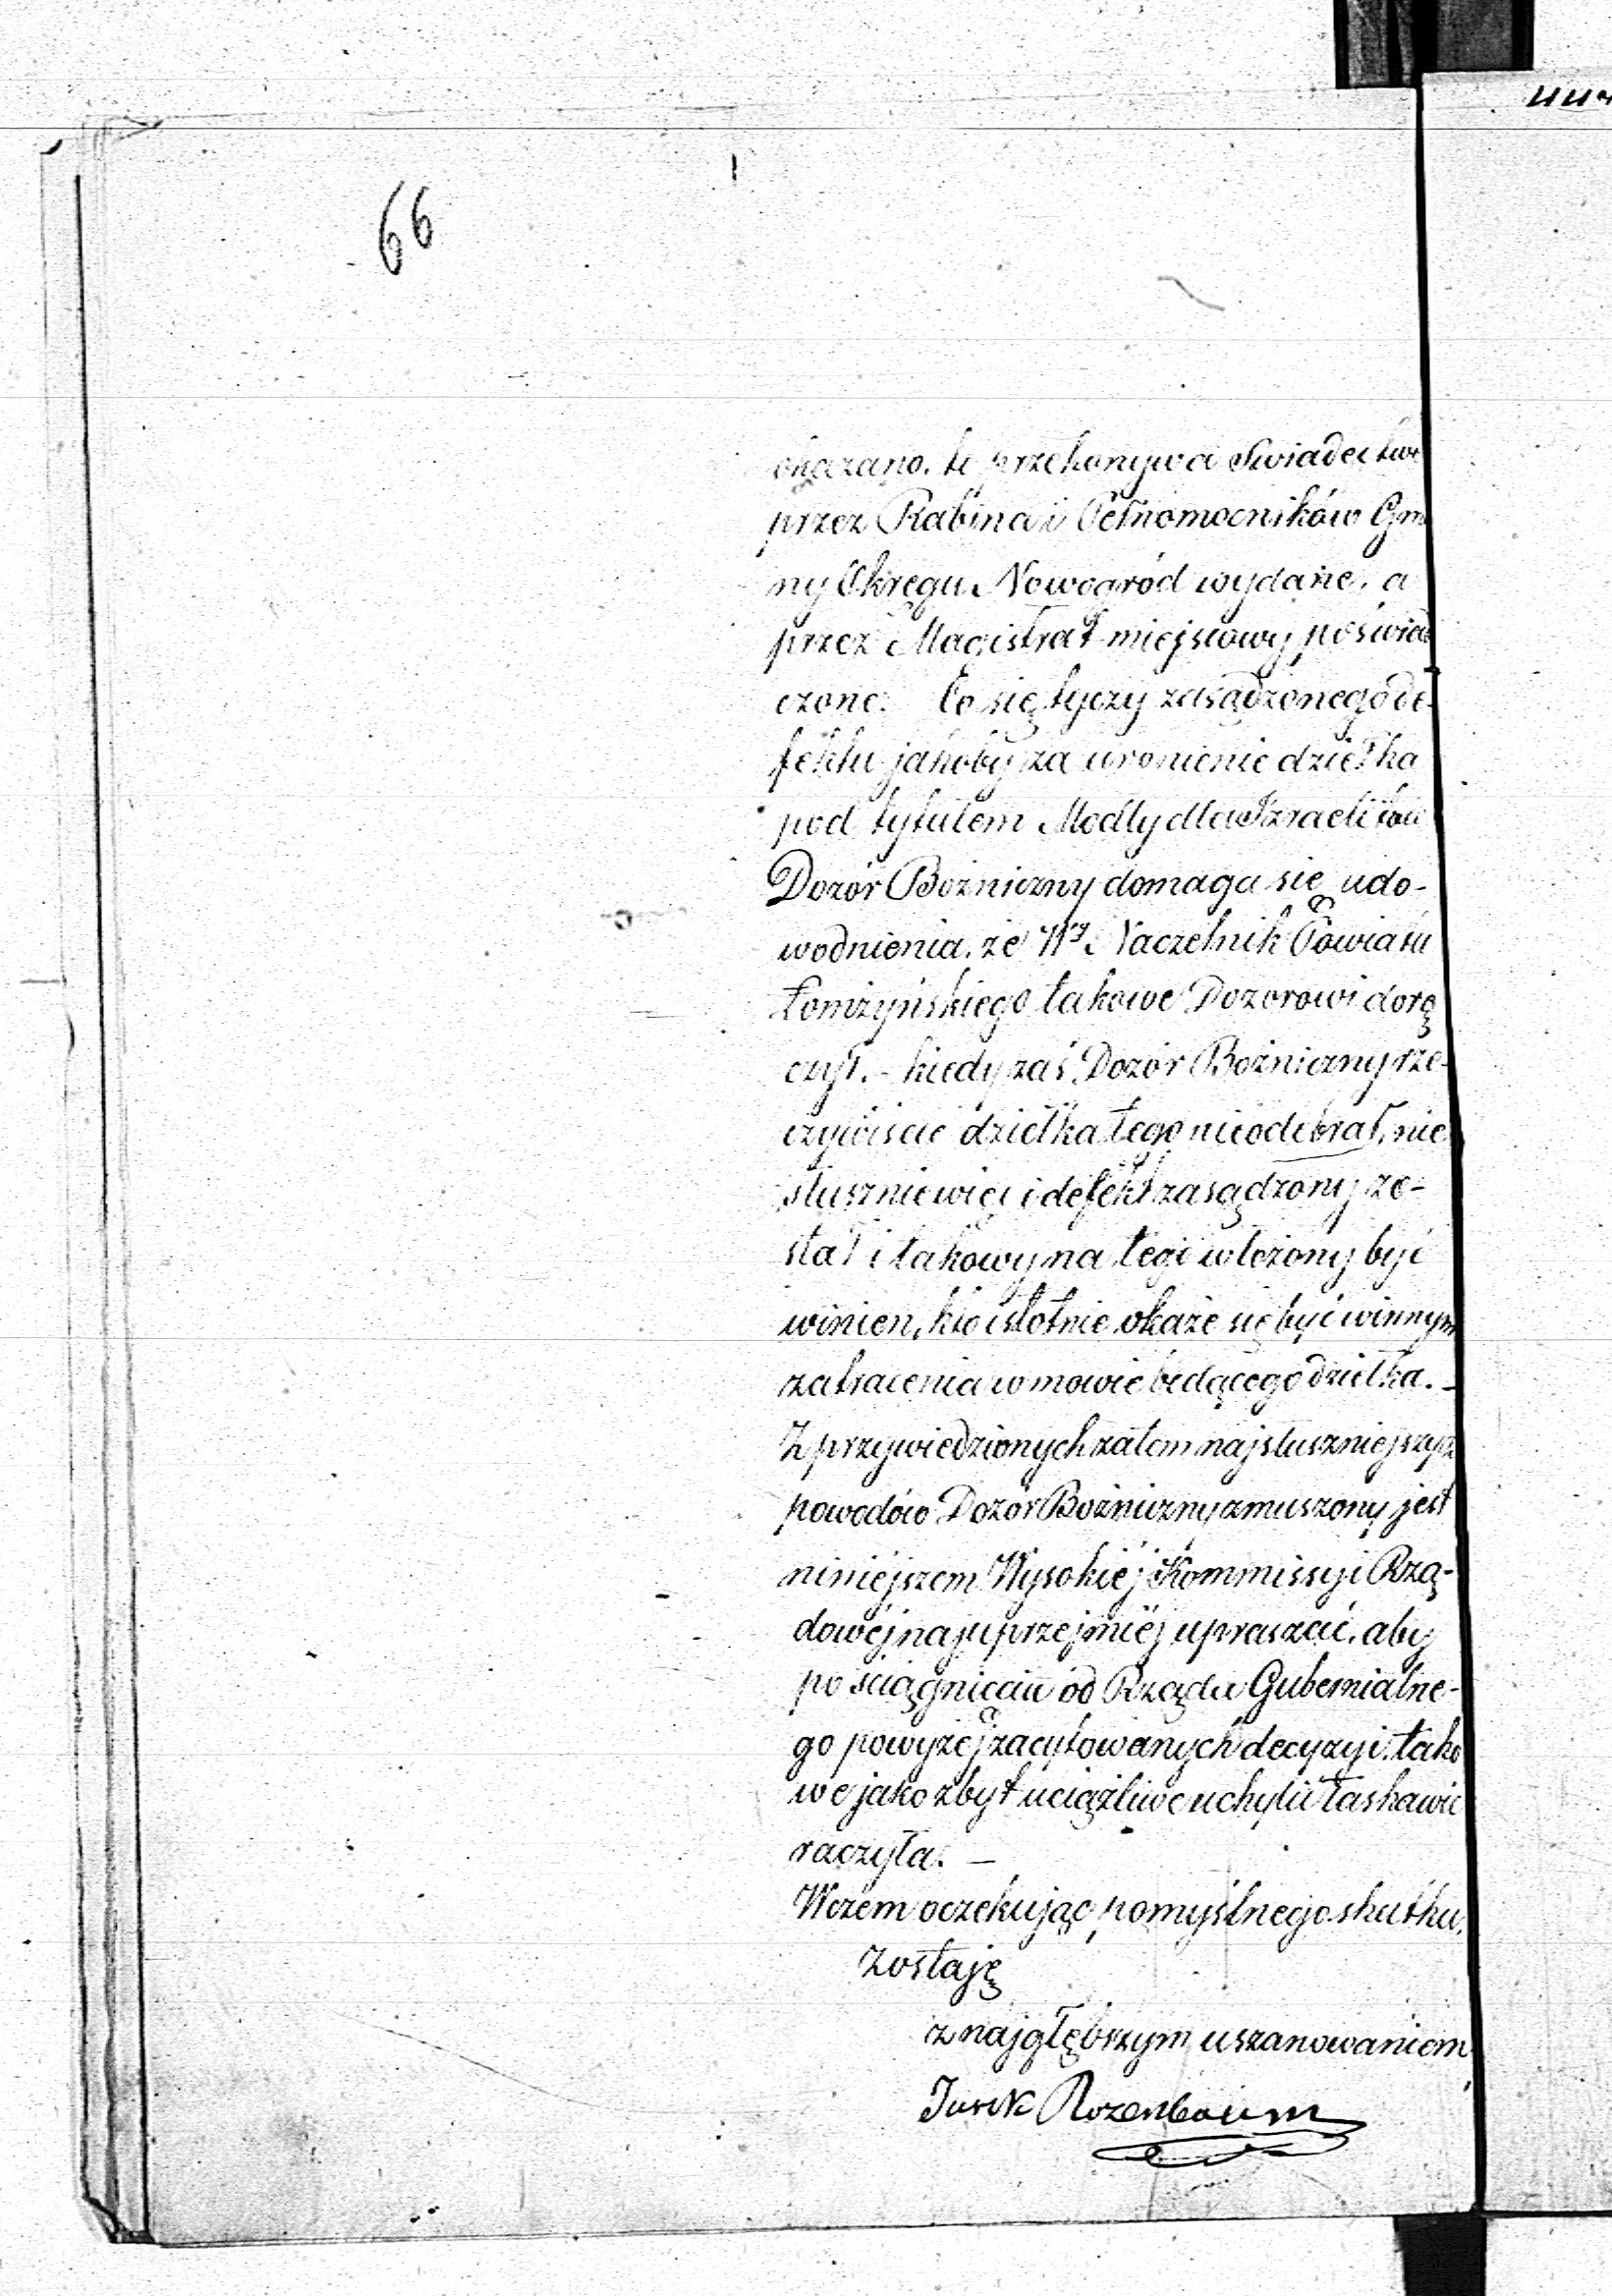 66
okazano. te przekonywa Swiadectwo
przez Rabina i Pełnomocników Gmi
ny Okręgu Nowogród wydane, a
przez Magistrat miejscowy poświad
czone. Co się tyczy zasądzonego de-
fektu jakoby za uronienie dziełka
pod tytułem Modły dla Izraelitów
Dozór Bożniczny domaga się udo-
wodnienia, że Wy Naczelnik Powiatu
Łomżyńskiego takowe Dozorowi dorę
czył. – kiedy zaś Dozór Bożniczny rze-
czywiscie dziełka tego nieodebrał, nie
słusznie więc i defekt zasądzony zo-
stał i takowy na tego włożony być
winien, kto istotnie okaże się być winnym
zatracenia w mowie będącego dziełka. –
Z przywiedzionych zatem najsłuszniejszych
powodów Dozór Bożniczny zmuszony jest
niniejszem Wysokiéj Kommissyi Rzą-
dowéj najuprzejmiéj upraszać, aby
po ściągnięciu od Rządu Gubernialne-
go powyżéj zacytowanych decyzyi, tako
we jako zbyt uciążliwe uchylić łaskawie
raczyła. –
W czem oczekując pomyślnego skutku,
Zostaję
z najgłębszym uszanowaniem
Jusek Rozenbaum